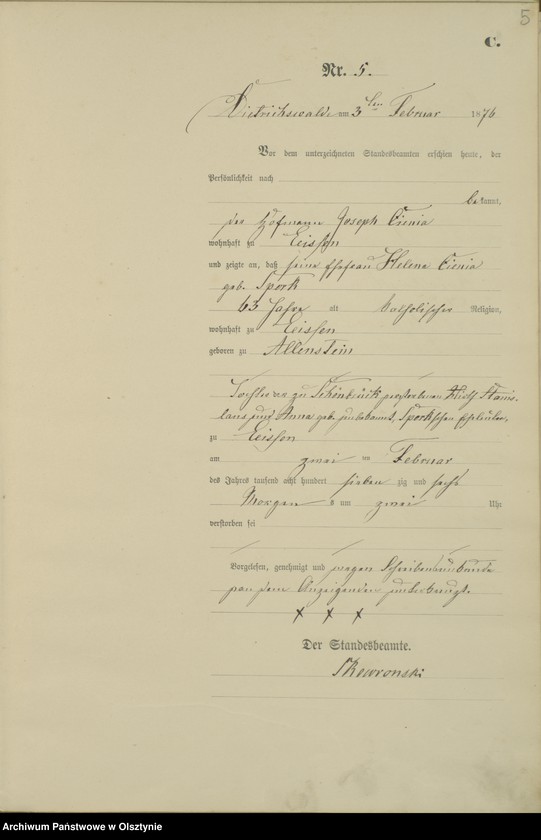 5
C.
Nr. 5.
Dietrichswalde am 3ten Februar 1876
Vor dem unterzeichneten Standesbeamten erschien heute, der
Persönlichkeit nach
bekannt,
der Hofmann Joseph Cienia
wohnhaft zu Leissen
und zeigte an, daß seine Ehefrau Helena Cienia
geb. Spork
63 Jahre alt katholischer Religion,
wohnhaft zu Leissen
geboren zu Allenstein
Tochter der zu Schönbrück verstorbenen Stanis-
laus und Anna geb. unbekannt, Sporkschen Eheleute,
zu Leissen
am zwei ten Februar
des Jahres tausend acht hundert sieben zig und sechs
Morgen s um zwei Uhr
verstorben sei
Vorgelesen, genehmigt und wegen Schreibensunkunde
von dem Anzeigenden unterkreuzt
x x x
Der Standesbeamte.
Skowronski
Archiwum Państwowe w Olsztynie